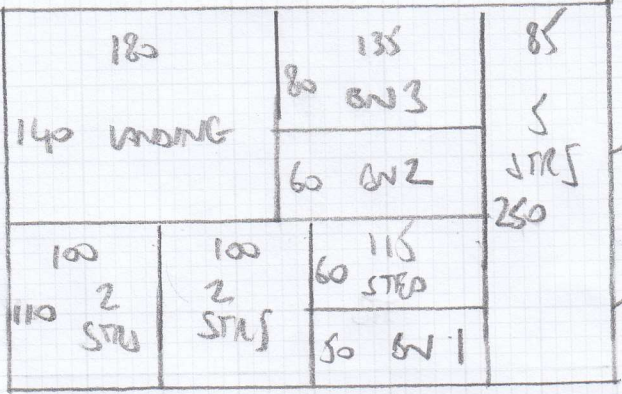 180
140 LANDING
135
80 BN 3
60 BN 2
85
5
STRS
250
100
110 2
STRS
100
2
STRS
115
60 STEP
50 BN 1